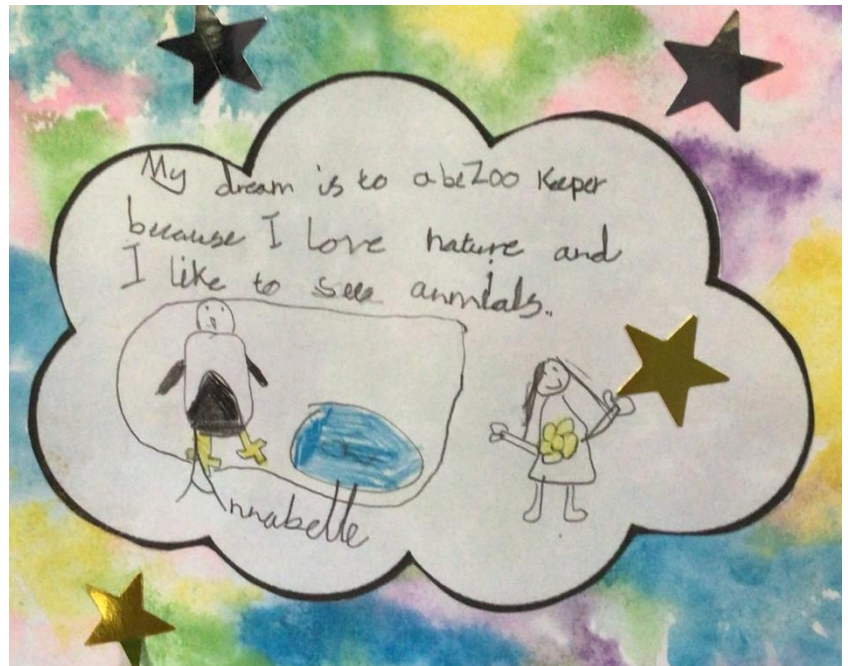 My dream is to a be Zoo Keeper
because I love nature and
I like to see anmials..
Annabelle